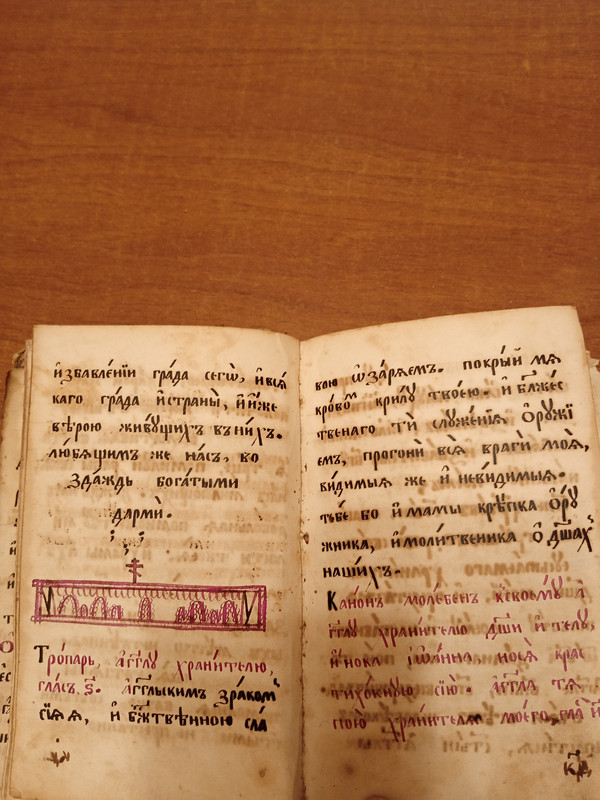 и҆збавле́нїи гра́да сегѡ̀, и҆ вся́
каго гра́да и҆ страны̀, и҆ и҆́же
вѣ́рою живꙋ́щихъ въ ни́хъ.
лю́бящимъ же на́съ, во
зда́ждь бога́тыми
дарми̇̀.
Тропарь, а҆́гг҃лꙋ храни́телю,
гла́съ. ѕ҃. а҆́гг҃льскимъ зра́комъ
сїѧ́ я, и҆ бж҃твенною сла́
вою ѡ҆заря́емъ. покры́й мѧ
кро́вомъ крилꙋ̀ твоє́ю. и҆ бж҃ес
твенаго тѝ слꙋже́нїѧ ѻ҆рꙋ́жї
емъ, прогонѝ всѧ̀ врагѝ моѧ̀,
ви́димыѧ же и҆ неви́димыѧ.
тебе́ бо и҆́мамы крѣ́пка ѻ҆рꙋ́
жника, и҆ моли́твеника ѻ҆ дш҃ахъ
на́шихъ.
Кано́нъ моле́бенъ к своемꙋ̀ а҆́
гг҃лꙋ храни́телю дш҃и и҆ тѣ́лꙋ,
и҆́нока і҆ѡа́нна. моѧ̀ крас
сїю̀. а҆́гг҃ла тѧ
пою̀ храни́телѧ моего̀,
к҃д